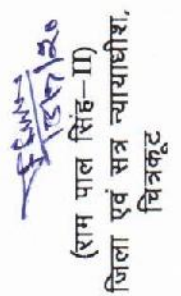 (राम पाल सिंह-II)
जिला एवं सत्र न्यायाधीश,
चित्रकूट